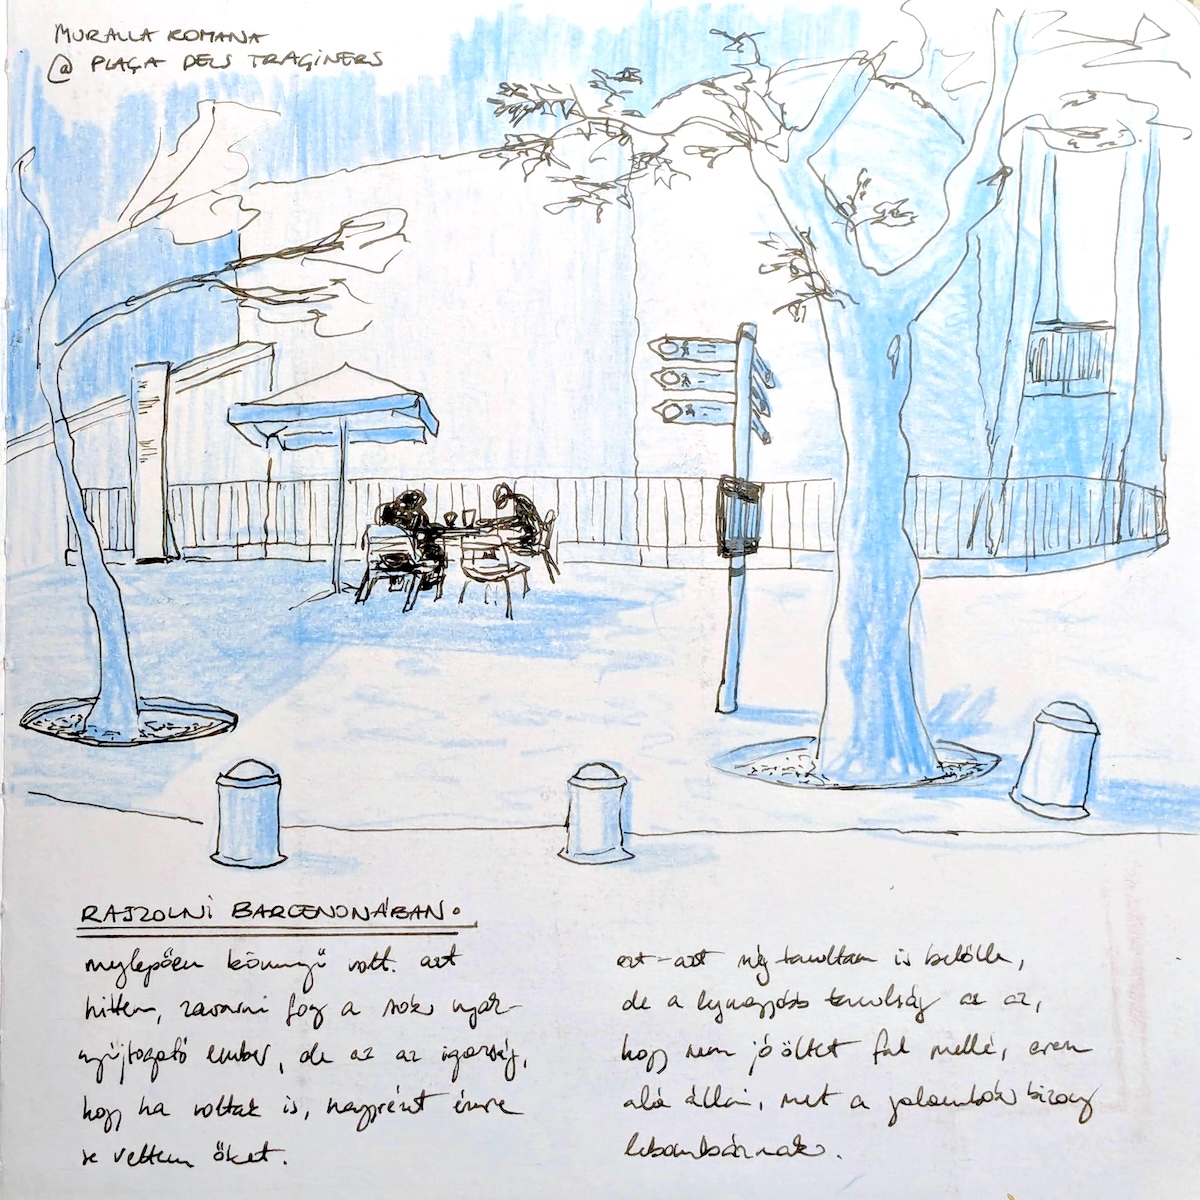 MURALLA ROMANA
@ PLAÇA DELS TRAGINERS
RAJZOLNI BARCENONÁBAN.
meglepően könnyű volt. azt
hittem, zavarni fog a sok nyak-
nyújtogató ember, de az az igazság,
hogy ha voltak is, nagyrészt észre
se vettem őket.
ezt-azt még tanultam is belőlle,
de a legnagyobb tanulság az az,
hogy nem jó ötlet fal mellé, erem
alá állni, mert a galambok bizony
lebombáznak.